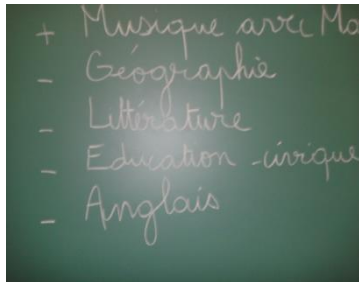 + Musique avec Mo
- Géographie
- Littérature
- Education -civique
- Anglais